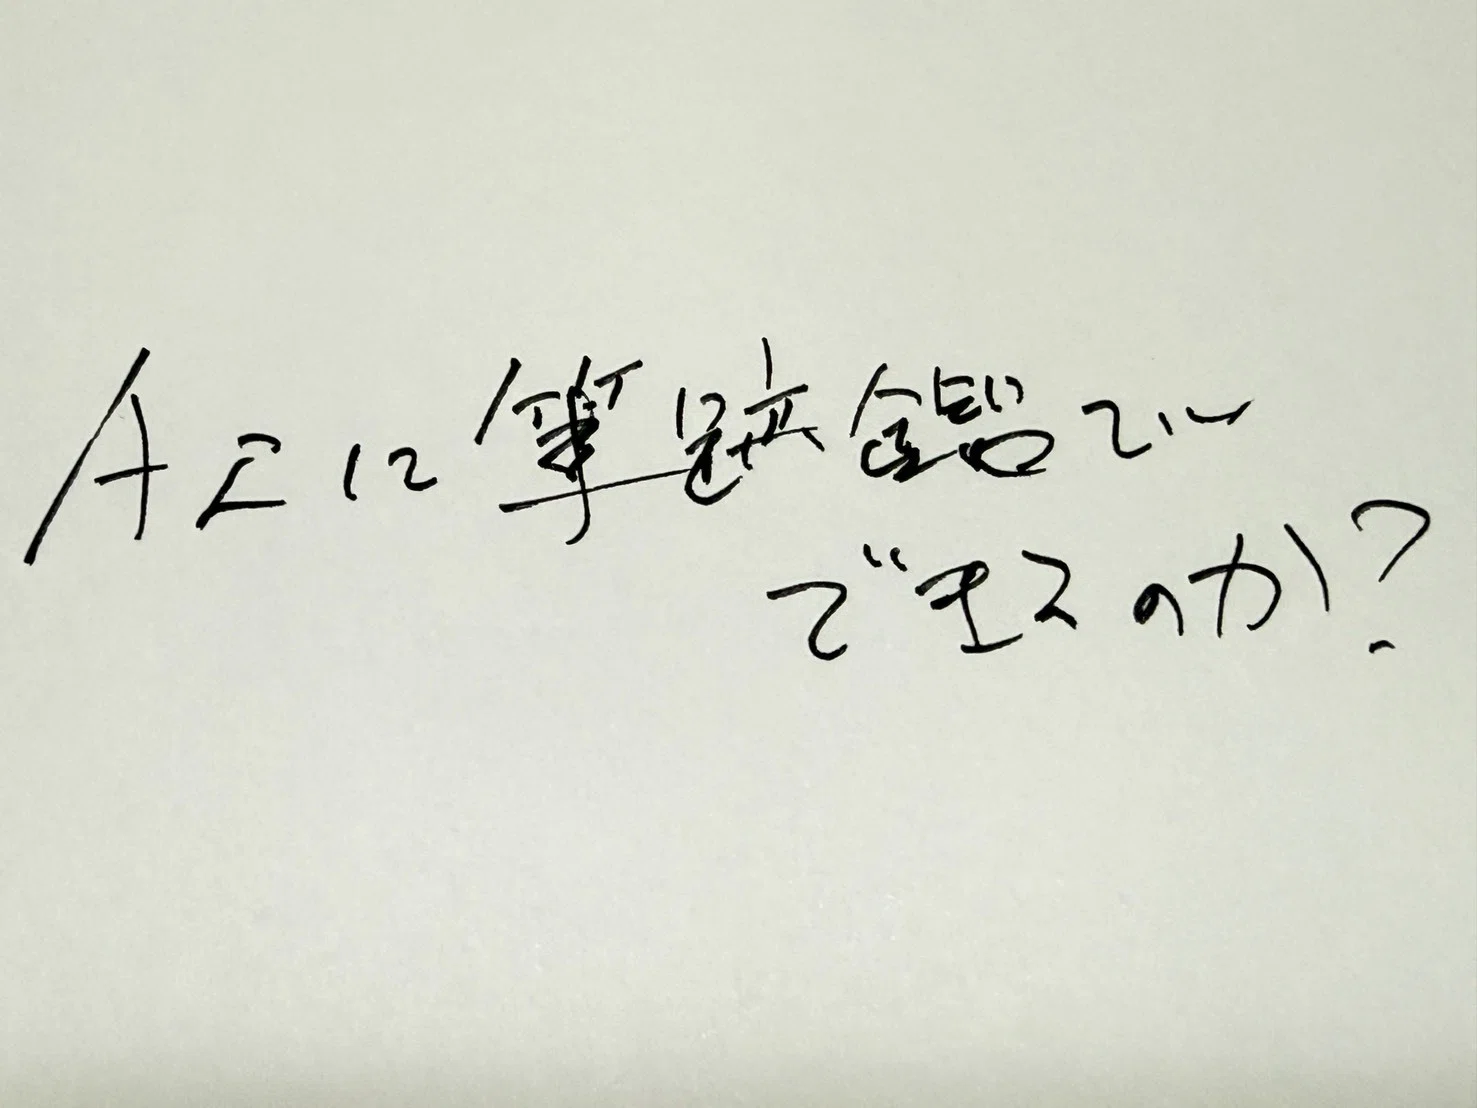 AIに筆跡鑑定
できるのか?